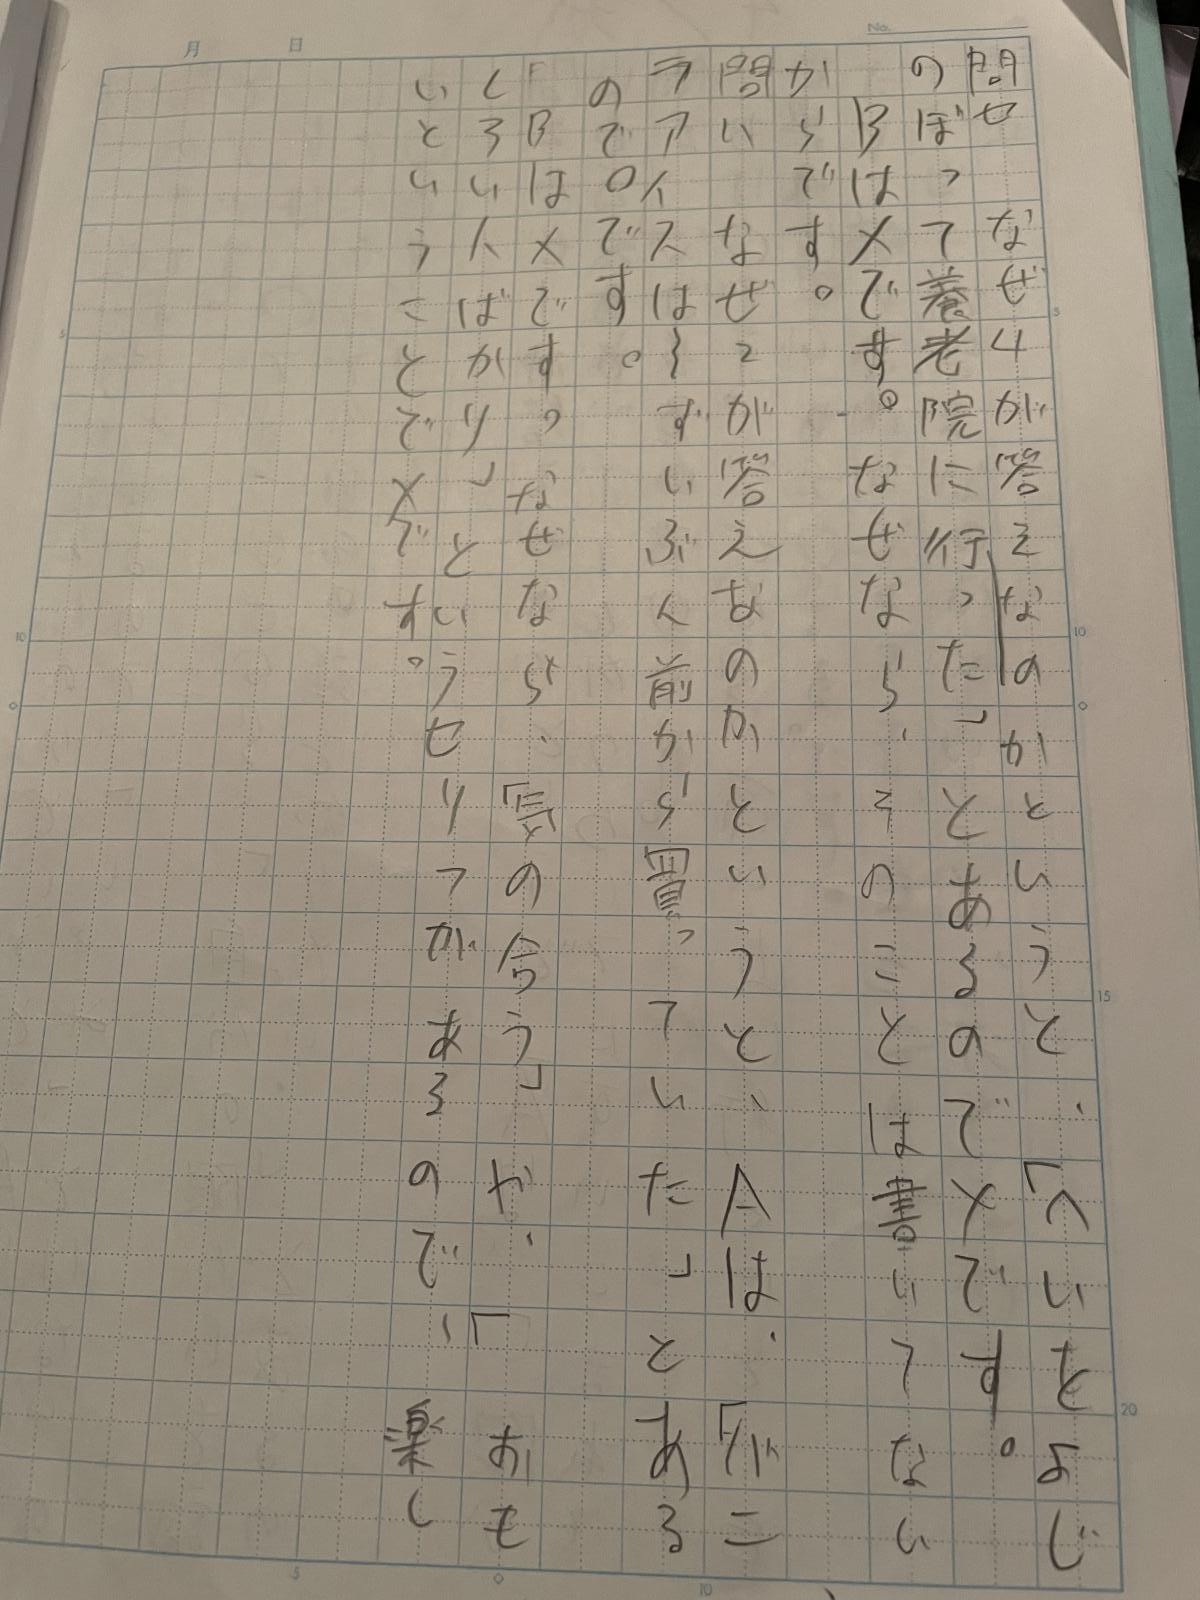 問七 なぜ4が答えなのかというと、「へいをよじ
のぼって養老院に行った」とあるので×です。
Bは×です。なぜなら、そのことは書いてない
からです。
問八 なぜ2が答えなのかというと、Aは、「がこ
ラアイスは〜ずいぶん前から買っていた」とある
ので○です。
「Bは×です。なぜなら、「気の合う」や、「おも
しろい人ばかり」というセリフがあるので、楽し
いということで×です。